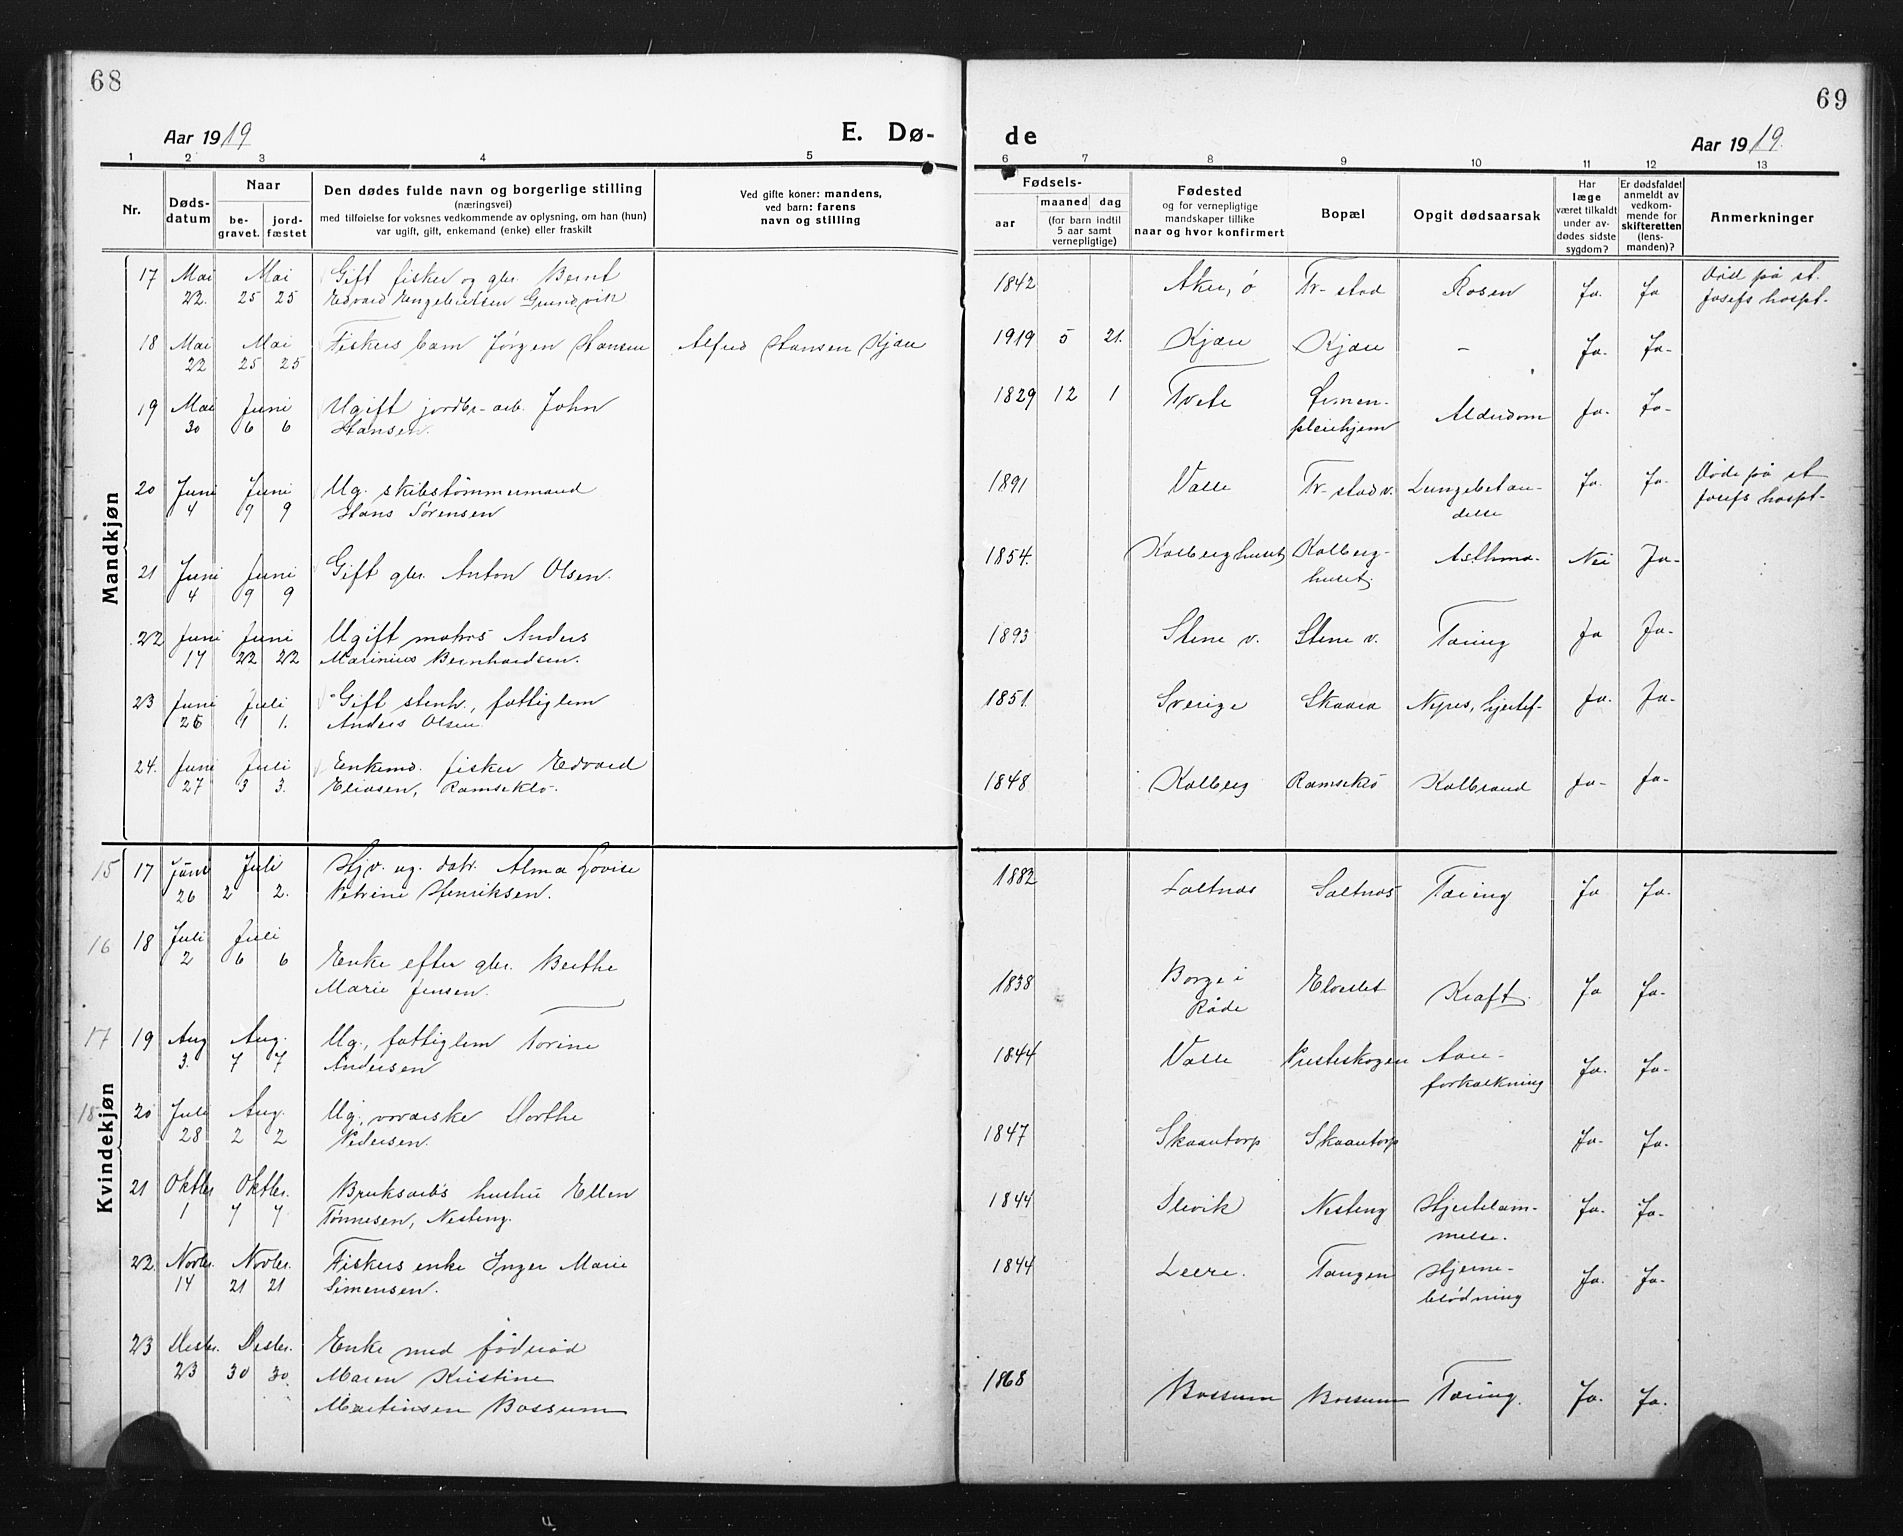 68
69
Aar 1919
E. Dø-
de
Aar 1919.
1 2 3 4 5 6 7 8 9 10 11 12 13
Nr.
Døds-
datum
Naar
be-
gravet.
jord-
fæstet
Den dødes fulde navn og borgerlige stilling
(næringsvei)
med tilføielse for voksnes vedkommende av oplysning, om han (hun)
var ugift, gift, enkemand (enke) eller fraskilt
Ved gifte koner: mandens,
ved barn: farens
navn og stilling
Fødsels-
aar
maaned dag
(for barn indtil
5 aar samt
vernepligtige)
Fødested
og for vernepligtige
mandskaper tillike
naar og hvor konfirmert
Bopæl
Opgit dødsaarsak
Har
læge
været tilkaldt
under av-
dødes sidste
sygdom?
Er dødsfaldet
anmeldt av
vedkom-
mende for
skifteretten
(lens-
manden)?
Anmerkninger
Mandkjøn
17 Mai Mai Gift fisker og gbr. Bernt 1842 Aker, ø Fr-stad Rosen Ja. Ja Død på st.
22. 25 25 Edvard Engebretsen Grundvik Josefs hospt.
18 Mai Mai Fiskers barn Jørgen Hansen Alfred Hansen Kjær 1919 5 21. Kjær Kjær - Ja. Ja-
22 25 25
19 Mai Juni Ugift jordbr-arb. John 1829 12 1 Tvete Alderdom Ja- Ja-
30 6 6 Hansen. pleiehjem
20 Juni Juni Ug. skibstømmermand 1891 Valle Fr-stad v. Lungebetæn- Ja. Ja. Døde på st
4 9 9 Hans Sørensen delse Josefs hospt-
21 Juni Juni Gift gbr. Anton Olsen. 1854. Kolberghuset Kolberg- Asthma- Nei Ja-
4 9 9 huset.
22 Juni Juni Ugift matros Anders 1893 Stene v. Stene v. Tæring Ja Ja-
17 22 22 Marinius Bernhardsen.
23 Juni Juli Gift stenh., fattiglem 1851. Sverige Skaara Nyres, hjertef- Ja. Ja-
26 1 1. Anders Olsen
24. Juni Juli Enkemd. fisker Edvard 1848 Kolberg Ramseklo Kolbrand Ja- Ja-
27 3 3. Eliasen, Ramseklo.
Kvindekjøn
15 17 Juni Juli Hjv. ug. datr. Alma Lovise 1882 Saltnæs Saltnæs Tæring Ja Ja.
26 2 2. Petrine Henriksen.
16 18 Juli Juli
2 6 6 Enke efter gbr. Berthe 1838 Borge i Kræft. Ja Ja-
Marie Jensen. Råde
17 19 Aug Aug. Ug., fattiglem Torine 1844 Valle Presteskogen Aare- Ja. Ja-
3. 7 7 Andersen forkalkning
18 20 Juli Aug. Ug., vorderske Dorthe 1847 Skaartorp Skaartorp Ja- Ja-
28 2 2 Pedersen.
21 Oktbr. Oktbr. Bruksarb's hustru Ellen 1844 Slevik Nesteng Hjertelam- Ja- Ja-
1 7 7 Tønnesen, Nesteng. melse.
22. Novbr. Novbr. Fiskers enke Inger Marie 1844 Leere. Tangen Hjerne- Ja. Ja-
14 21 21 Simensen. blødning
23 Desbr. Desbr. Enke med føderåd
23 30 30. Maren Kristine 1868 Bossum Bossum Tæring. Ja. Ja.
Martinsen Bossum